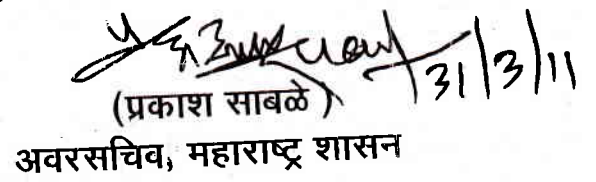 31/3/11
(प्रकाश साबळे)
अवरसचिव, महाराष्ट्र शासन